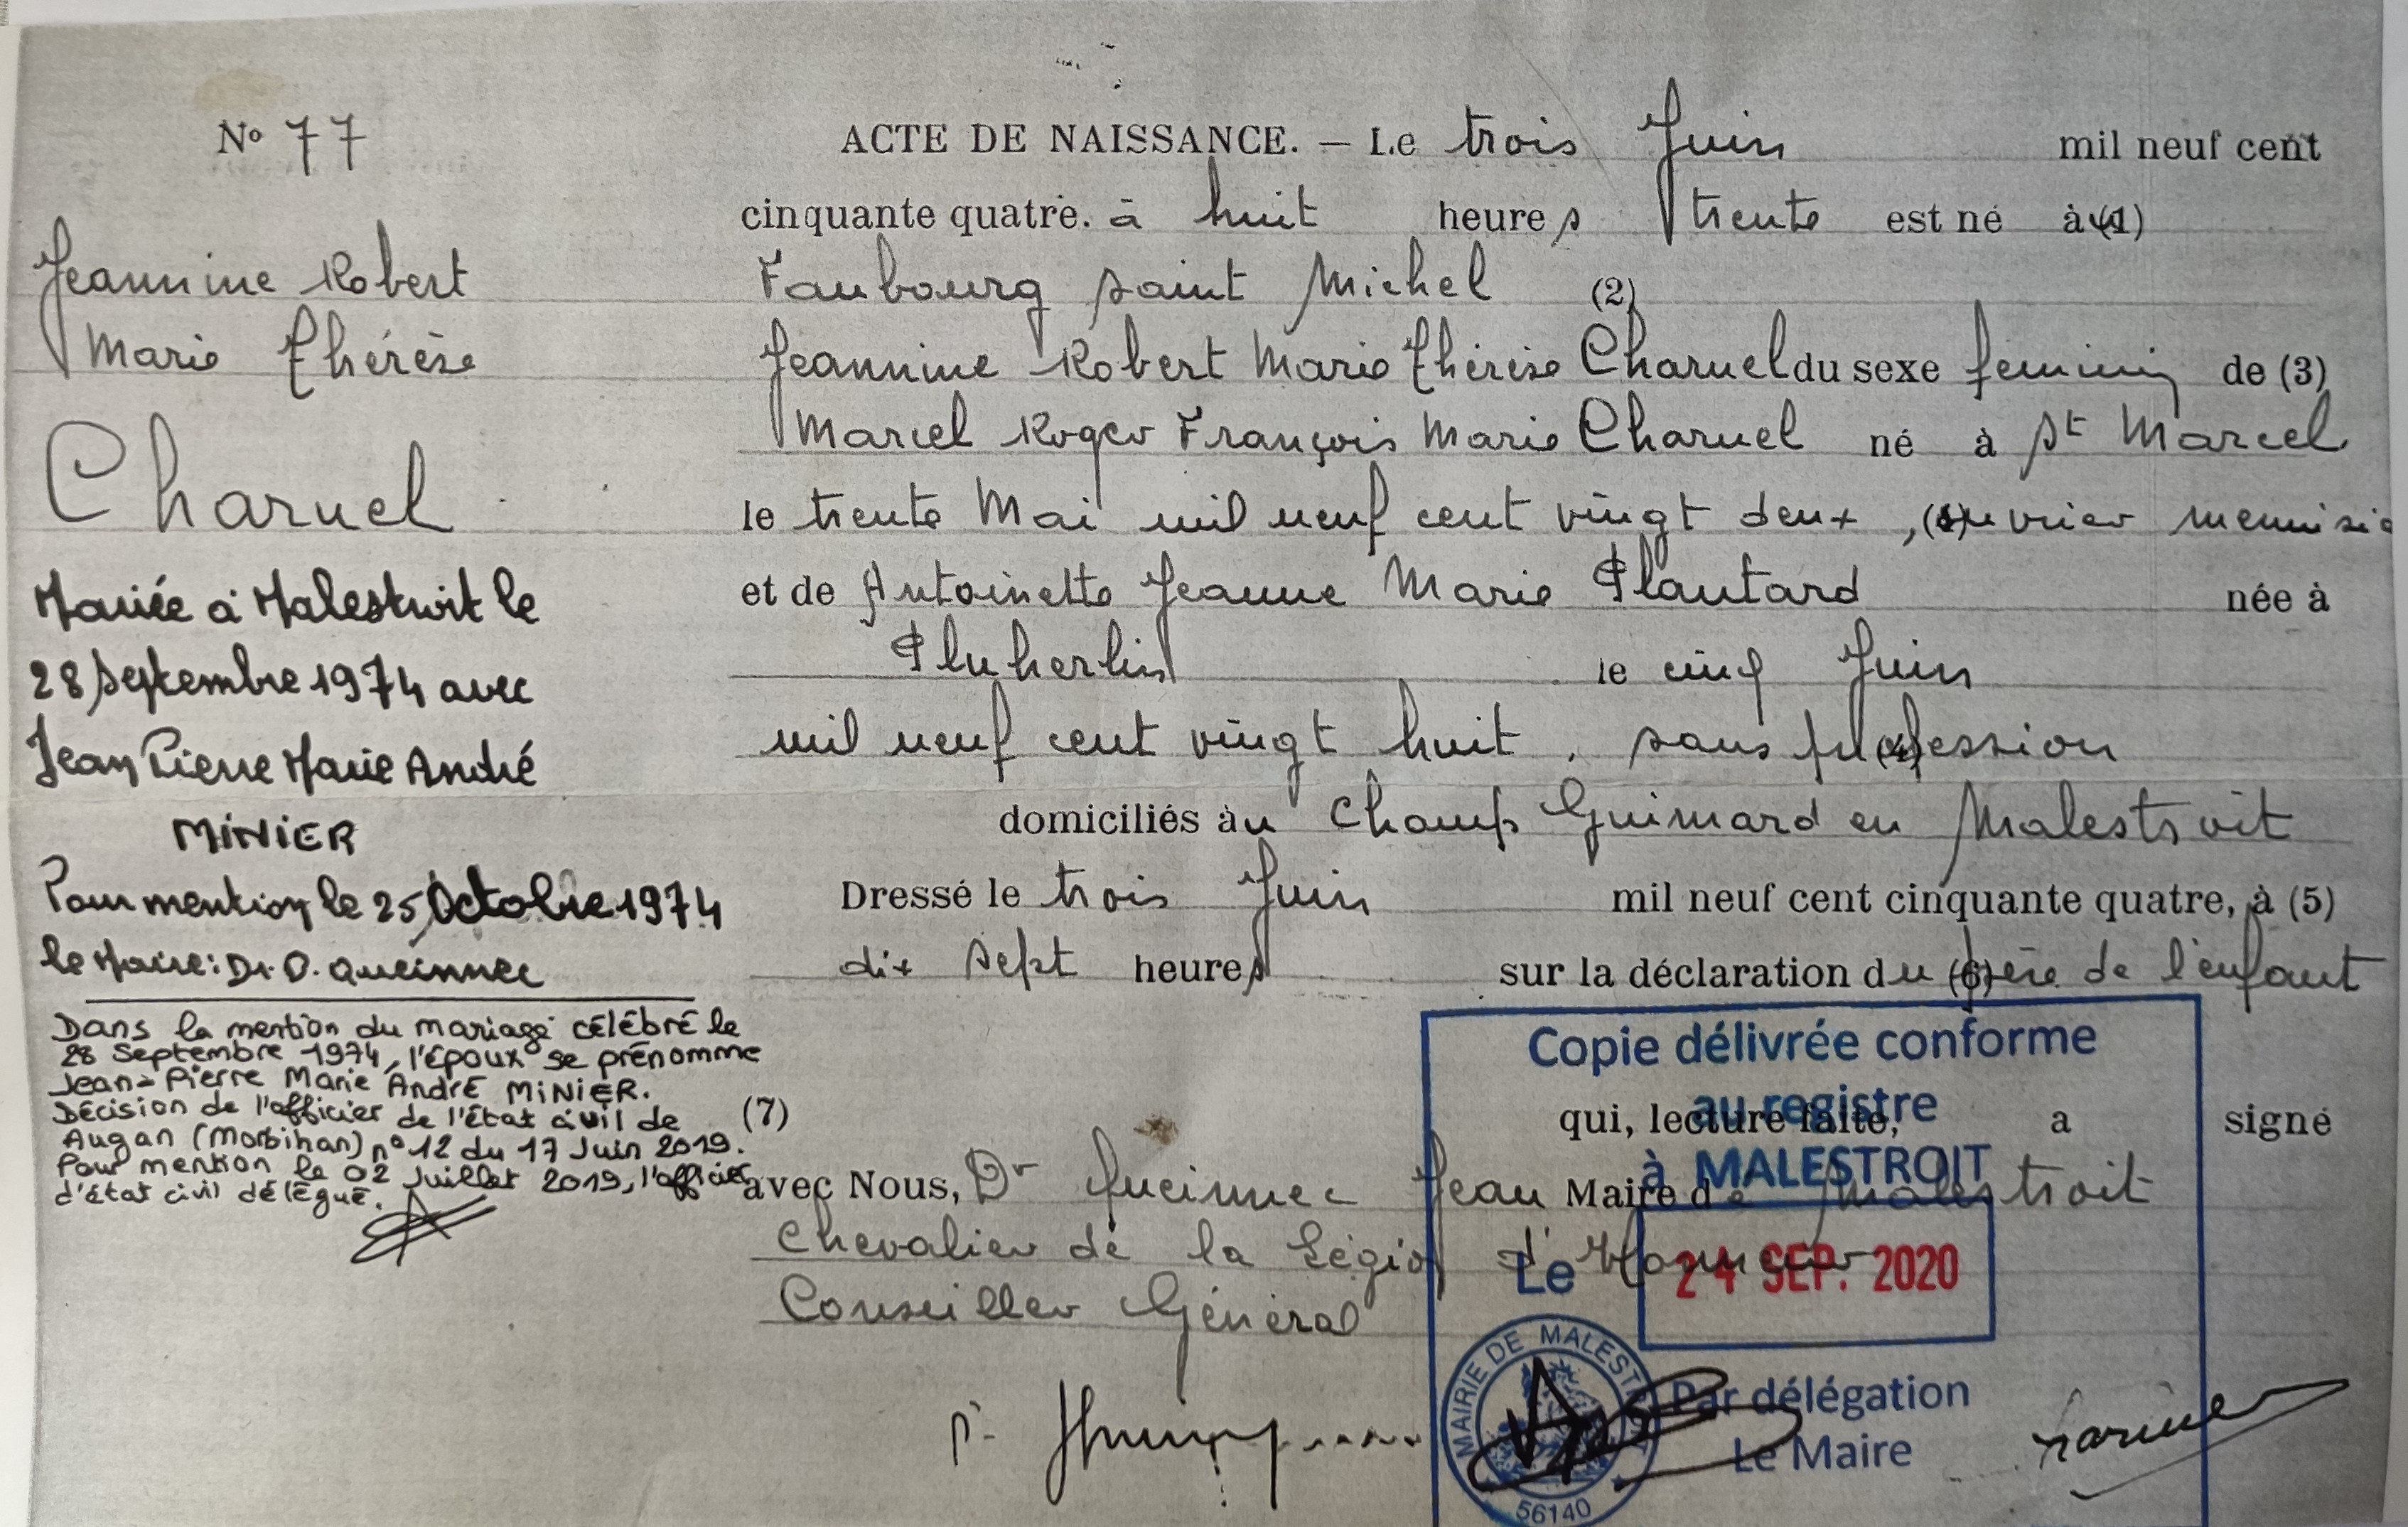 N° 77
Jeannine Robert
Marie Thérèse
Charuel
Mariée à Malestroit le
28 septembre 1974 avec
Jean Pierre Marie André
MINIER
Pour mention le 25 Octobre 1974
le Maire: Dr. O. Queinnec
Dans la mention du mariage célébré le
28 Septembre 1974, l'époux se prénomme
Jean-Pierre Marie André MINIER.
Décision de l'officier de l'état civil de
Augan (Morbihan) n° 12 du 17 Juin 2019.
Pour mention le 02 Juillet 2019, l'officier
d'état civil délégué.
ACTE DE NAISSANCE. — Le trois Juin mil neuf cent
cinquante quatre. à huit heures trente est né à (1)
Faubourg saint Michel (2)
Jeannine Robert Marie Thérèse Charuel du sexe feminin de (3)
Marcel Roger François Marie Charuel né à St Marcel
le trente Mai mil neuf cent vingt deux, (4) ouvrier menuisie
et de Antoinette Jeanne Marie Plautard née à
Pluherlin le cinq Juin
mil neuf cent vingt huit, sans profession (4)
domiciliés àu Champ Guimard en Malestroit
Dressé le trois Juin mil neuf cent cinquante quatre, à (5)
dix sept heures sur la déclaration du (6) père de l'enfant
(7) qui, lecture faite, a signé
avec Nous, Dr Queinnec Jean Maire de Malestroit
Chevalier de la Légion d'Honneur
Conseiller Général
Copie délivrée conforme
au registre
à MALESTROIT
Le 24 SEP. 2020
Par délégation
Le Maire
MAIRIE DE MALESTROIT
56140